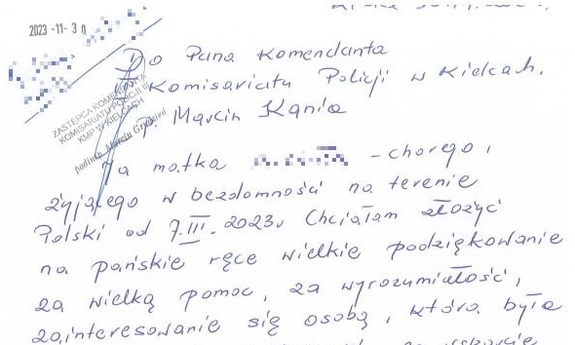 2023 -11- 30
Do Pana Komendanta
Komisariatu Policji w Kielcach.
P. Marcin Kania
ZASTĘPCA KOMENDANTA
KOMISARIATU POLICJI III
KMP W KIELCACH
Ja matka - chorego,
żyjącego w bezdomności na terenie
Polski od 7.III.2023r Chciałam złożyć
na pańskie ręce wielkie podziękowanie
za wielką pomoc, za wyrozumiałość,
zainteresowanie się osobą, która była